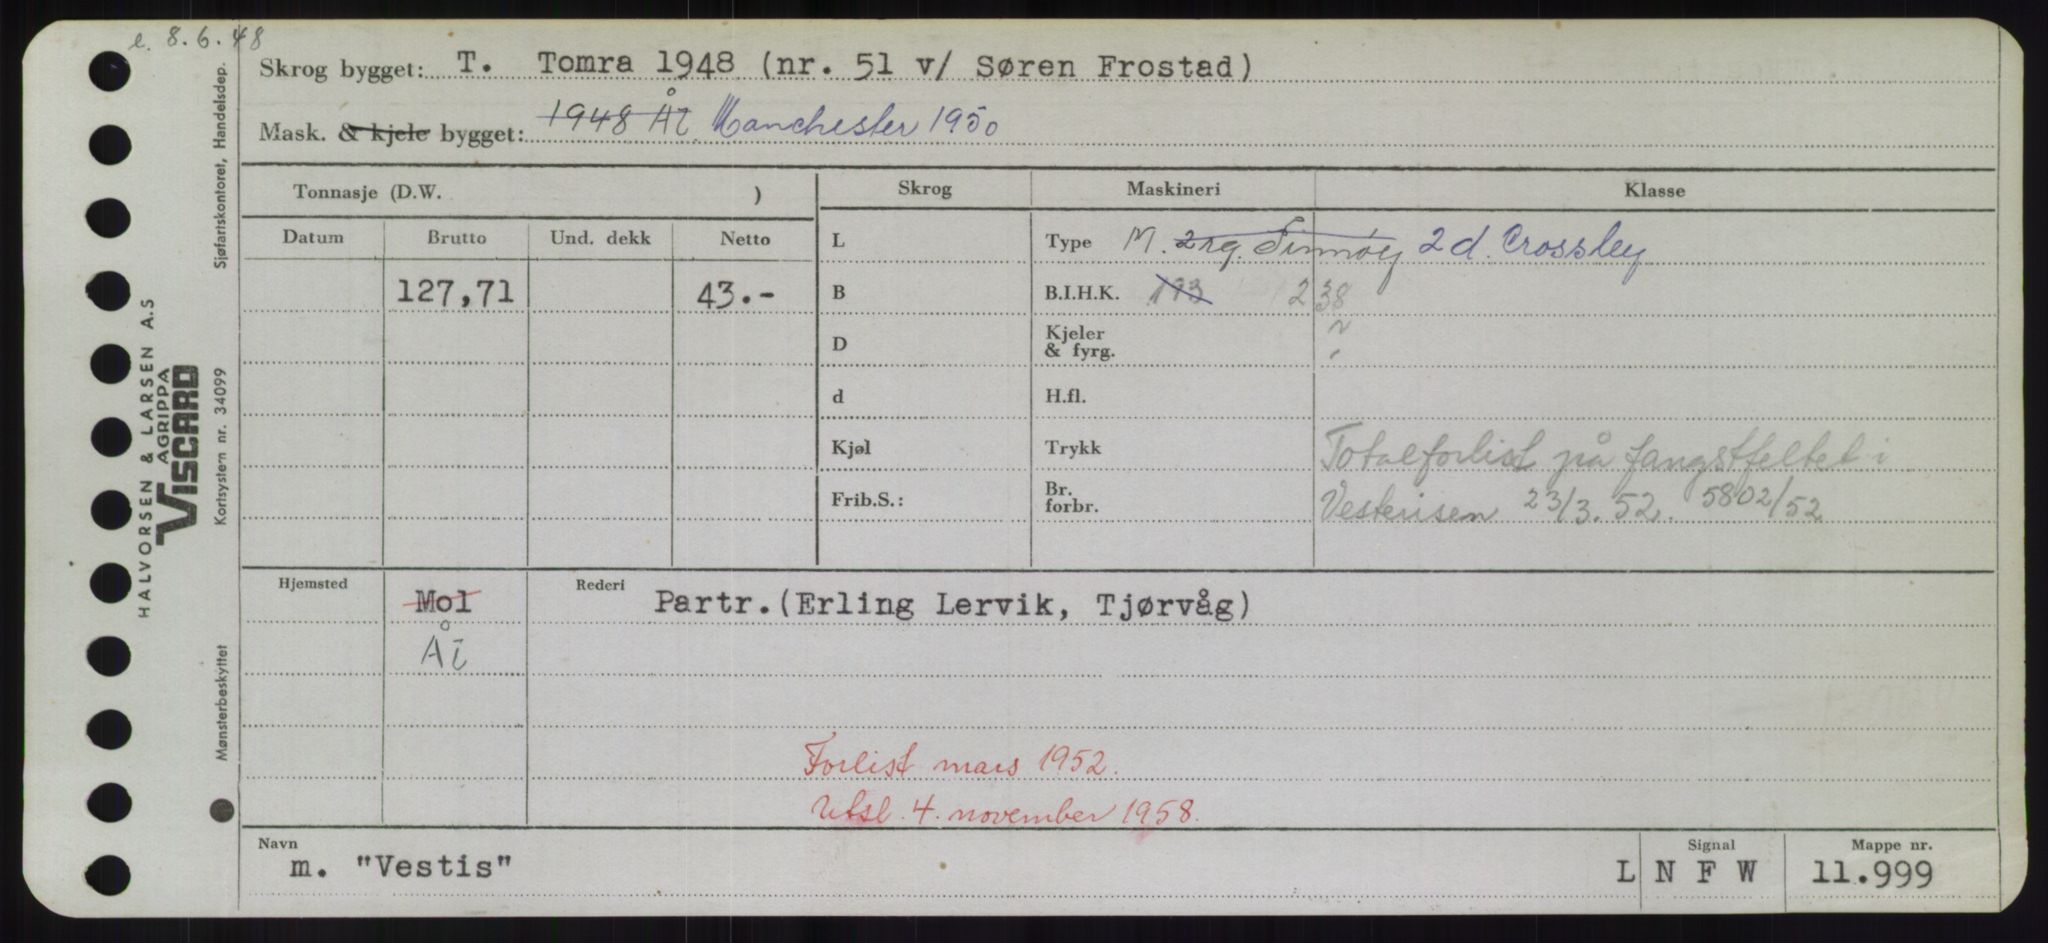 e. 8.6.48
Skrog bygget: T. Tomra 1948 (nr. 51 v/ Søren Frostad)
Mask. & kjele bygget: 1948 Ål Manchester 1950
Tonnasje (D.W. )
Skrog Maskineri Klasse
Datum Brutto Und. dekk Netto
L Type M. 2 rg. 2 d. Crossley
127,71 43.-
B B.I.H.K. 173 238
D Kjeler & fyrg.
d H.fl.
Kjøl Trykk Totalforlist på fangstfeltet i
Frib.S.: Br. forbr. Vesterisen 23/3.52. 5802/52
Hjemsted Mol Rederi Partr.(Erling Lervik, Tjørvåg)
Ål
Forlist mars 1952.
Utsl. 4. november 1958.
Navn Signal Mappe nr.
m. "Vestis" L N F W 11.999
HALVORSEN & LARSEN A.S
AGRIPPA
VISCARD
Sjøfartskontoret, Handelsdep.
Kortsystem nr. 34099
Mønsterbeskyttet